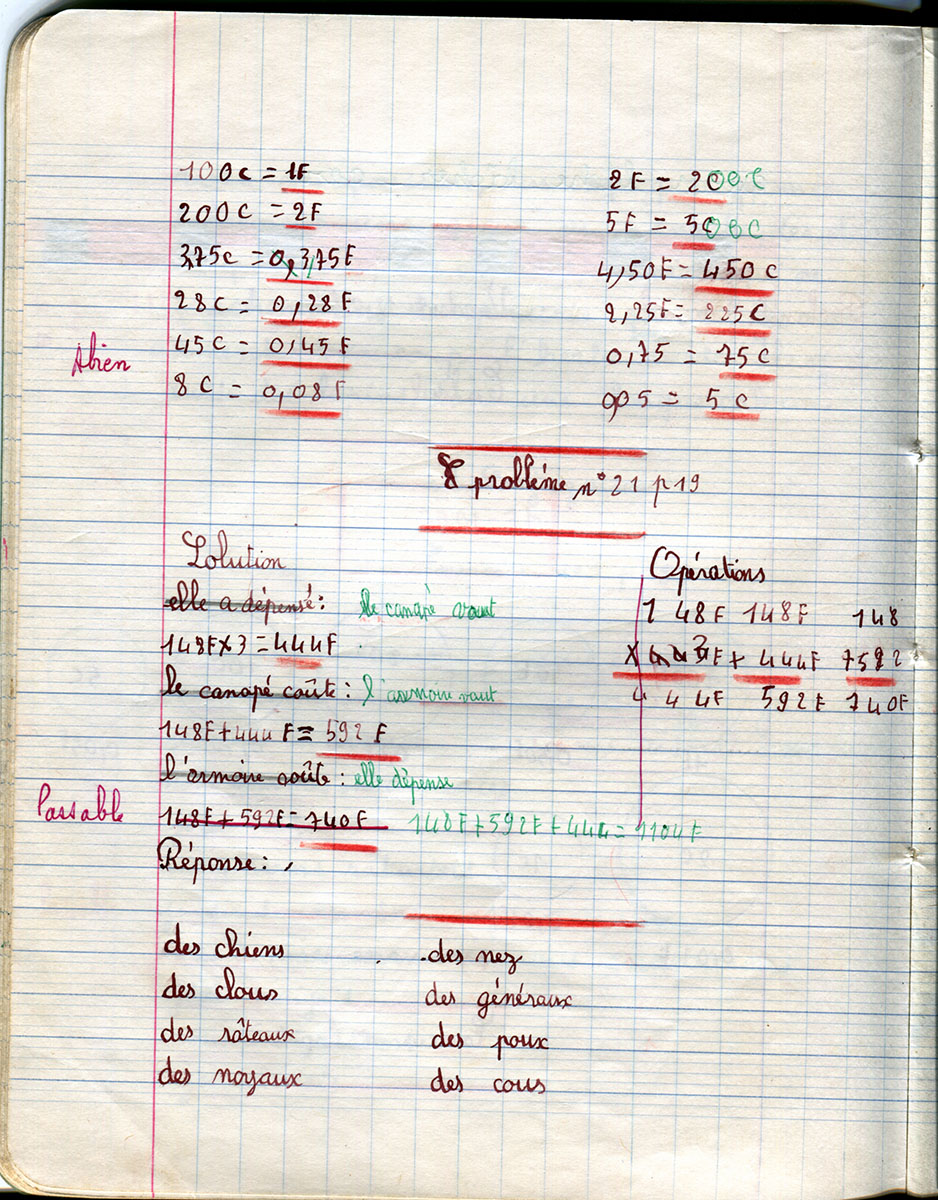 100c = 1F
200c = 2F
375c = 0,375F
28c = 0,28F
45c = 0,45F
8c = 0,08F
2F = 200c
5F = 500c
4,50F = 450c
2,25F = 225c
0,75 = 75c
0,05 = 5c
bien
problème n° 21 p 19
Solution
elle a dépensé : le canapé vaut
148F x 3 = 444F
le canapé coûte : l'armoire vaut
148F + 444F = 592F
l'armoire coûte : elle dépense
Passable
148F + 592F = 740F 148F + 592F + 444 = 1104F
Réponse :
Opérations
148F 148F 148
x 3F + 444F 7592
444F 592F 740F
des chiens
des clous
des râteaux
des noyaux
des nez
des généraux
des poux
des cous